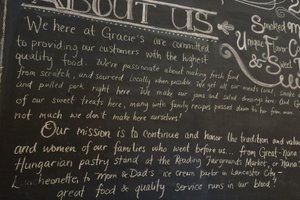 ABOUT US
We here at Gracie's are committed
to providing our customers with the highest
quality food. We're passionate about making fresh food
from scratch, and sourced locally when possible. We get all our meats
and pulled pork right here. We make our jams and salad dressings here. And
of our sweet treats here, many with family recipes passed down to her from
not much we don't make here ourselves!
Our mission is to continue and honor the tradition and
and women of our families who went before us... from Great-
Hungarian pastry stand at the Reading Fairgrounds Market, or Nana's
Luncheonette, to Mom & Dad's ice cream parlor in Lancaster City-
great food & quality service runs in our blood!
Smoked
Unique
& Sweet